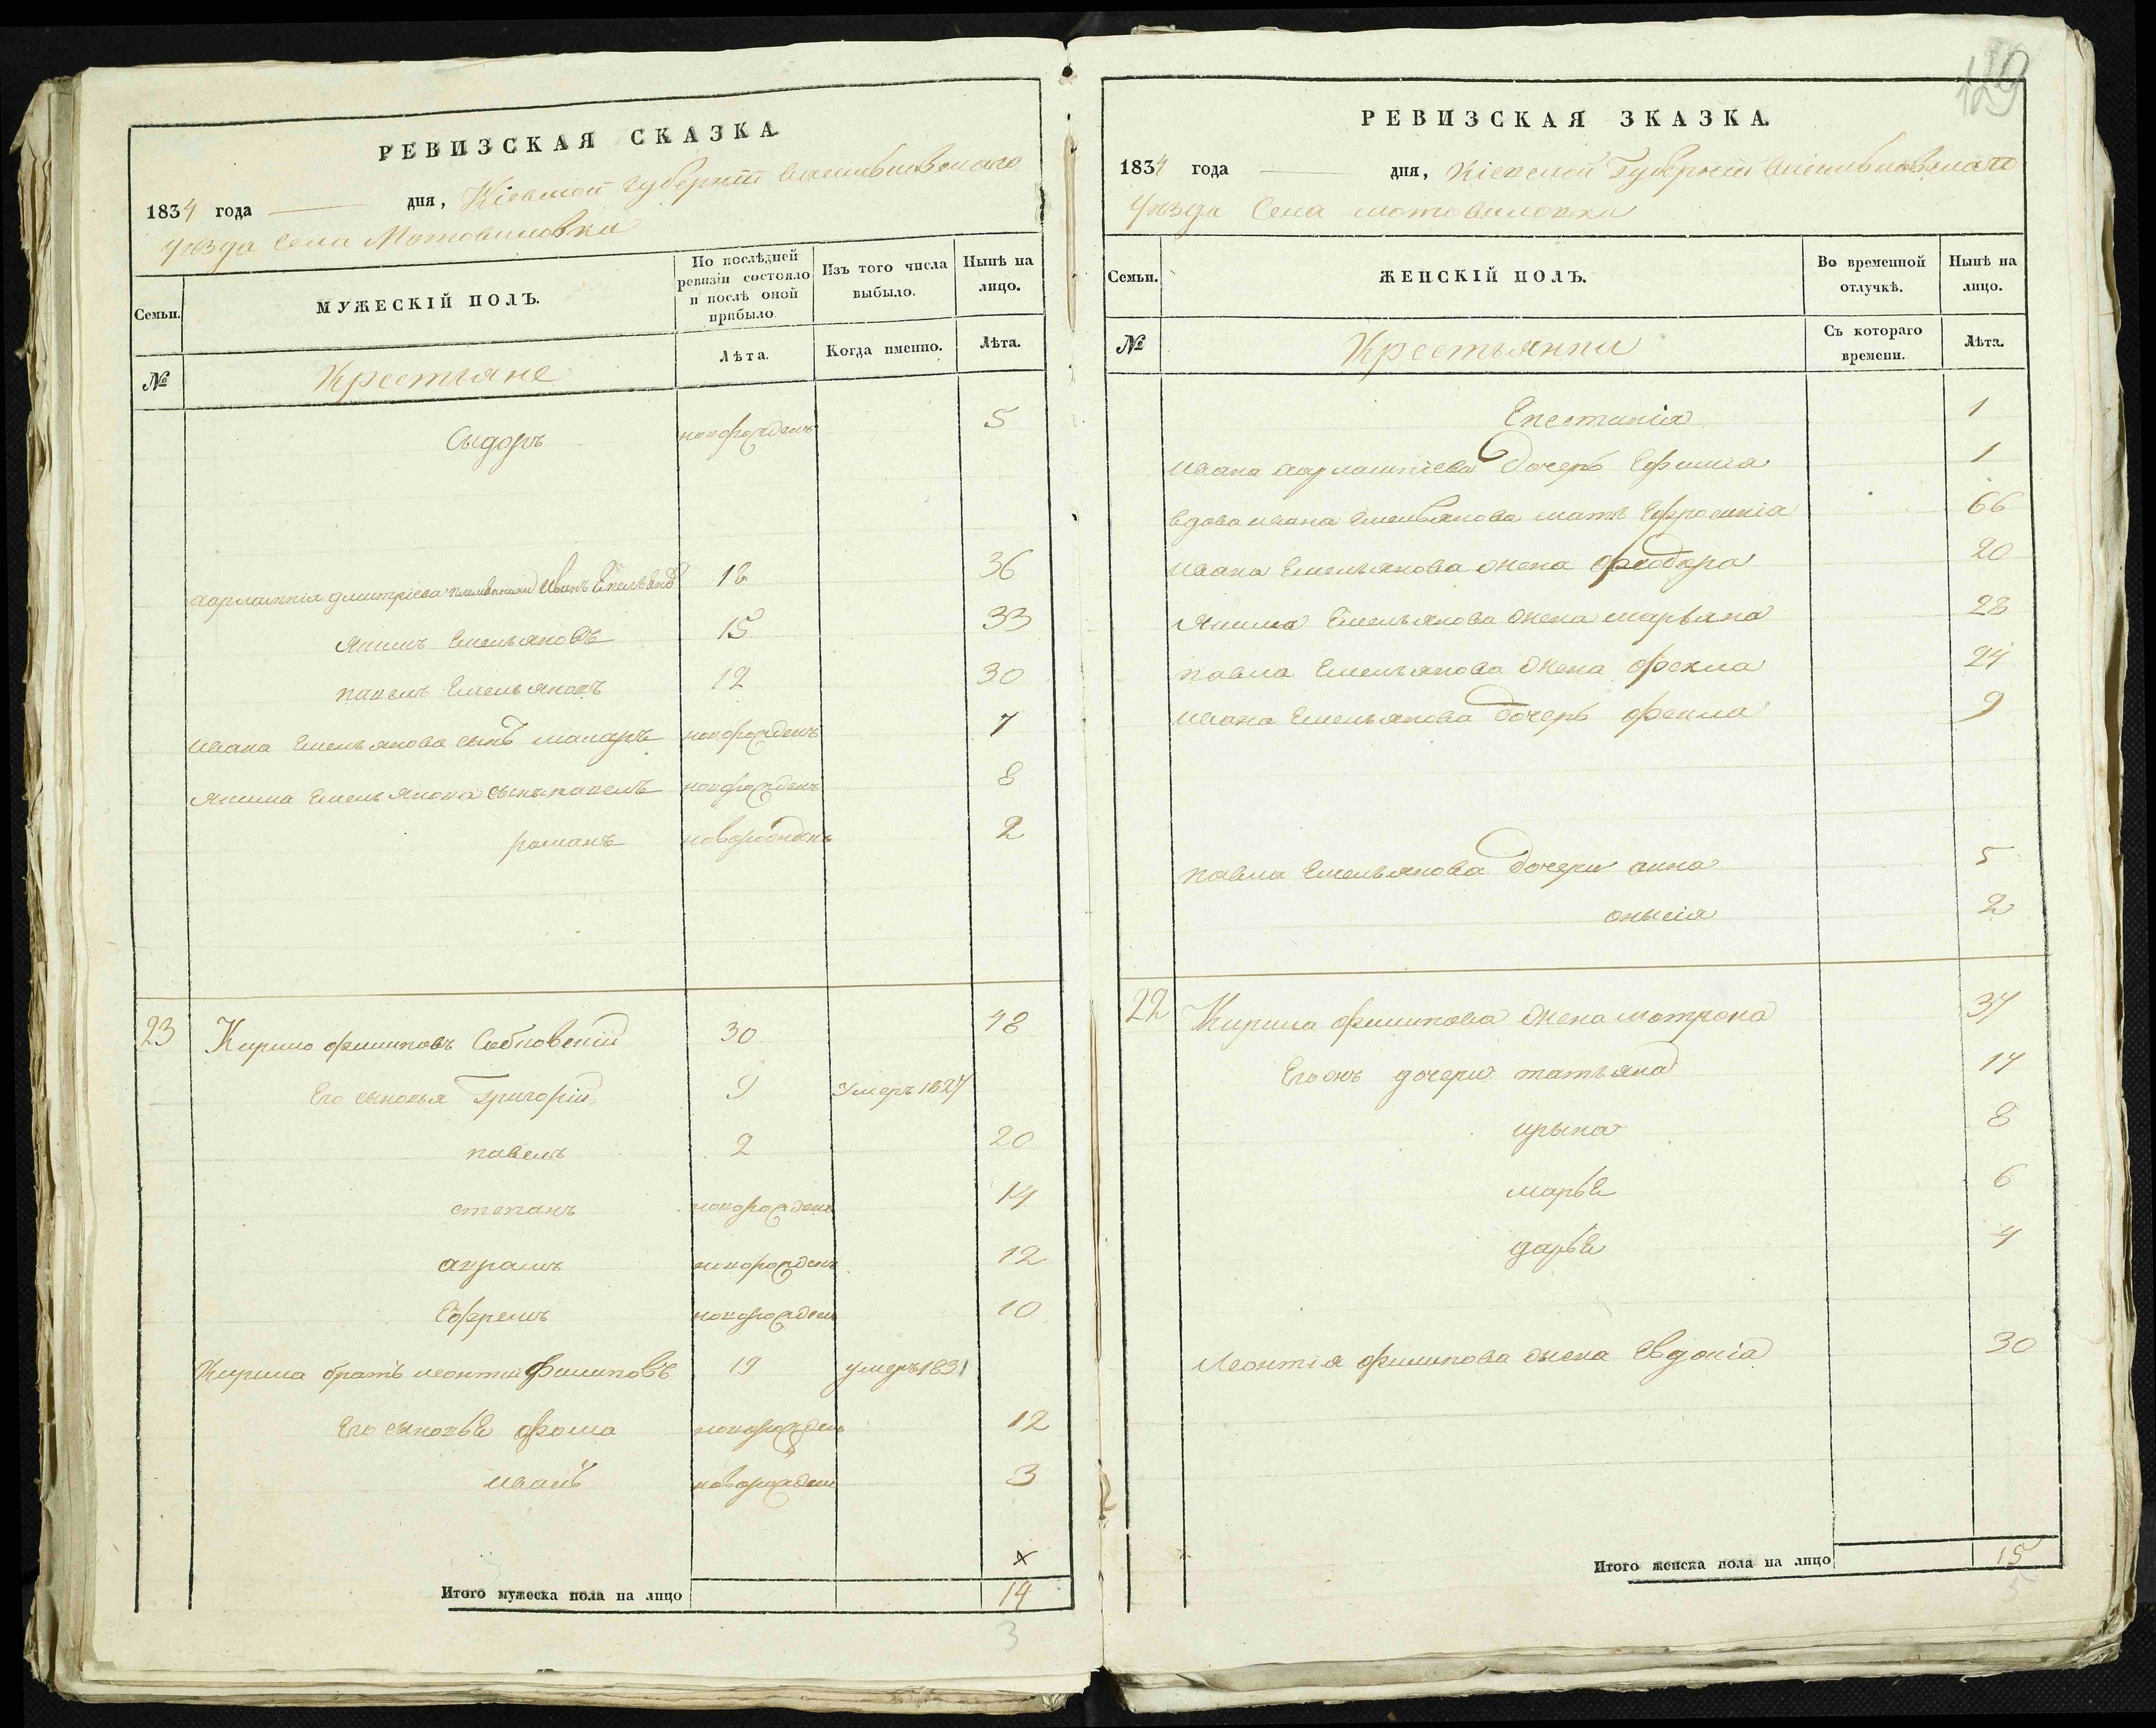 РЕВИЗСКАЯ СКАЗКА.
1834 года дня, Кіевской губерніи Васильковскаго
уѣзда села Мотовиловки
Семьи. МУЖЕСКІЙ ПОЛЪ. По послѣдней ревизіи состояло и послѣ оной прибыло. Изъ того числа выбыло. Нынѣ на лицо.
№ Крестьяне Лѣта. Когда именно. Лѣта.
Сыдоръ новорожденъ 5
Харлампія Дмитріева племянники Иванъ Емельяновъ 18 36
Якимъ Емельяновъ 15 33
павелъ Емельяновъ 12 30
Ивана Емельянова сынъ макаръ новорожденъ 7
Якима Емельянова сынъ павелъ новорожденъ 8
романъ новорожденъ 2
23 Кирило филиповъ 30 48
Его сыновья Григорій 9 Умеръ 1827
павелъ 2 20
степанъ новорожденъ 14
аврамъ новорожденъ 12
Ефремъ новорожденъ 10
Кирила братъ леонтій Филиповъ 19 умеръ 1831
Его сыновье фома новорожденъ 12
иванъ новорожденъ 3
х
Итого мужеска пола на лицо 14
3
129
РЕВИЗСКАЯ ЗКАЗКА.
1834 года дня, Кіевской Губерніи Васильковскаго
Уѣзда Села мотовиловки
Семьи. ЖЕНСКІЙ ПОЛЪ. Во временной отлучкѣ. Нынѣ на лицо.
№ Крестьянки Съ котораго времени. Лѣта.
Епестинія 1
Ивана харлампіева дочерь Ефимія 1
вдова ивана Емельянова мать Ефросинія 66
Ивана Емельянова жена феодора 20
Якима Емельянова жена марьяна 28
павла Емельянова жена фекла 24
Ивана Емельянова дочерь фекла 9
павла Емельянова дочери анна 5
онисія 2
22 Кирила филипова жена мотрона 37
Егожъ дочери татьяна 14
ирына 8
марье 6
дарье 4
Леонтія филипова жена Евдокія 30
Итого женска пола на лицо 15
5